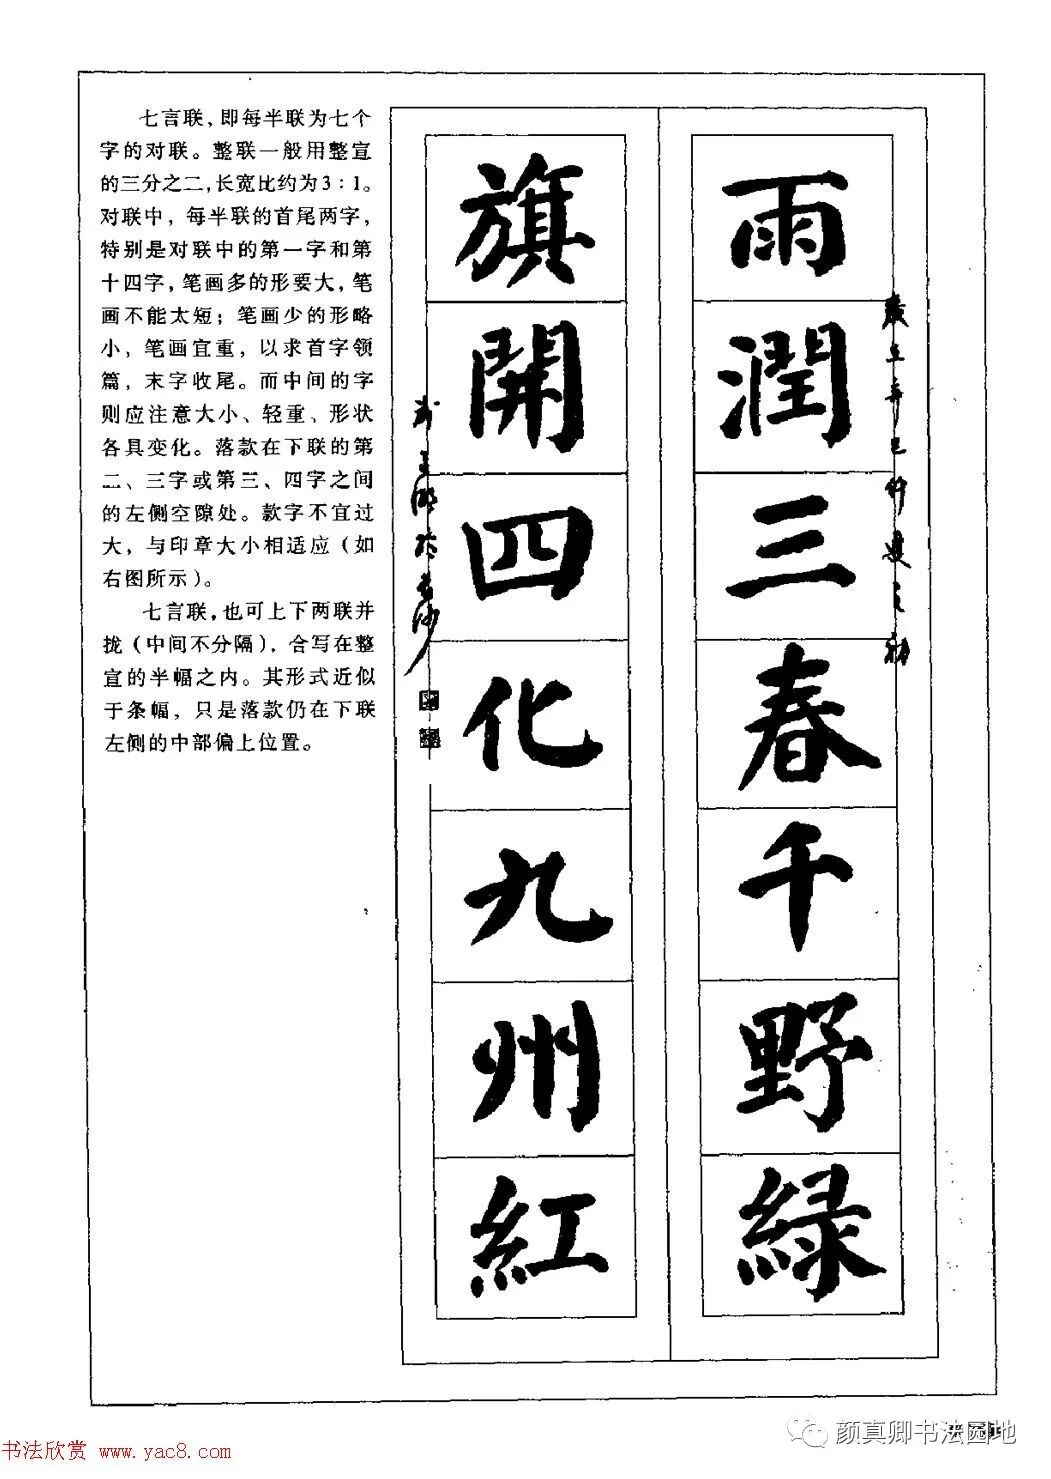 七言联，即每半联为七个
字的对联。整联一般用整宣
的三分之二，长宽比约为3：1。
对联中，每半联的首尾两字，
特别是对联中的第一字和第
十四字，笔画多的形要大，笔
画不能太短；笔画少的形略
小，笔画宜重，以求首字领
篇，末字收尾。而中间的字
则应注意大小、轻重、形状
各具变化。落款在下联的第
二、三字或第三、四字之间
的左侧空隙处。款字不宜过
大，与印章大小相适应（如
右图所示）。
七言联，也可上下两联并
拢（中间不分隔），合写在整
宣的半幅之内。其形式近似
于条幅，只是落款仍在下联
左侧的中部偏上位置。
雨潤三春千野緑
旗開四化九州紅
书法欣赏 www.yac8.com
颜真卿书法园地